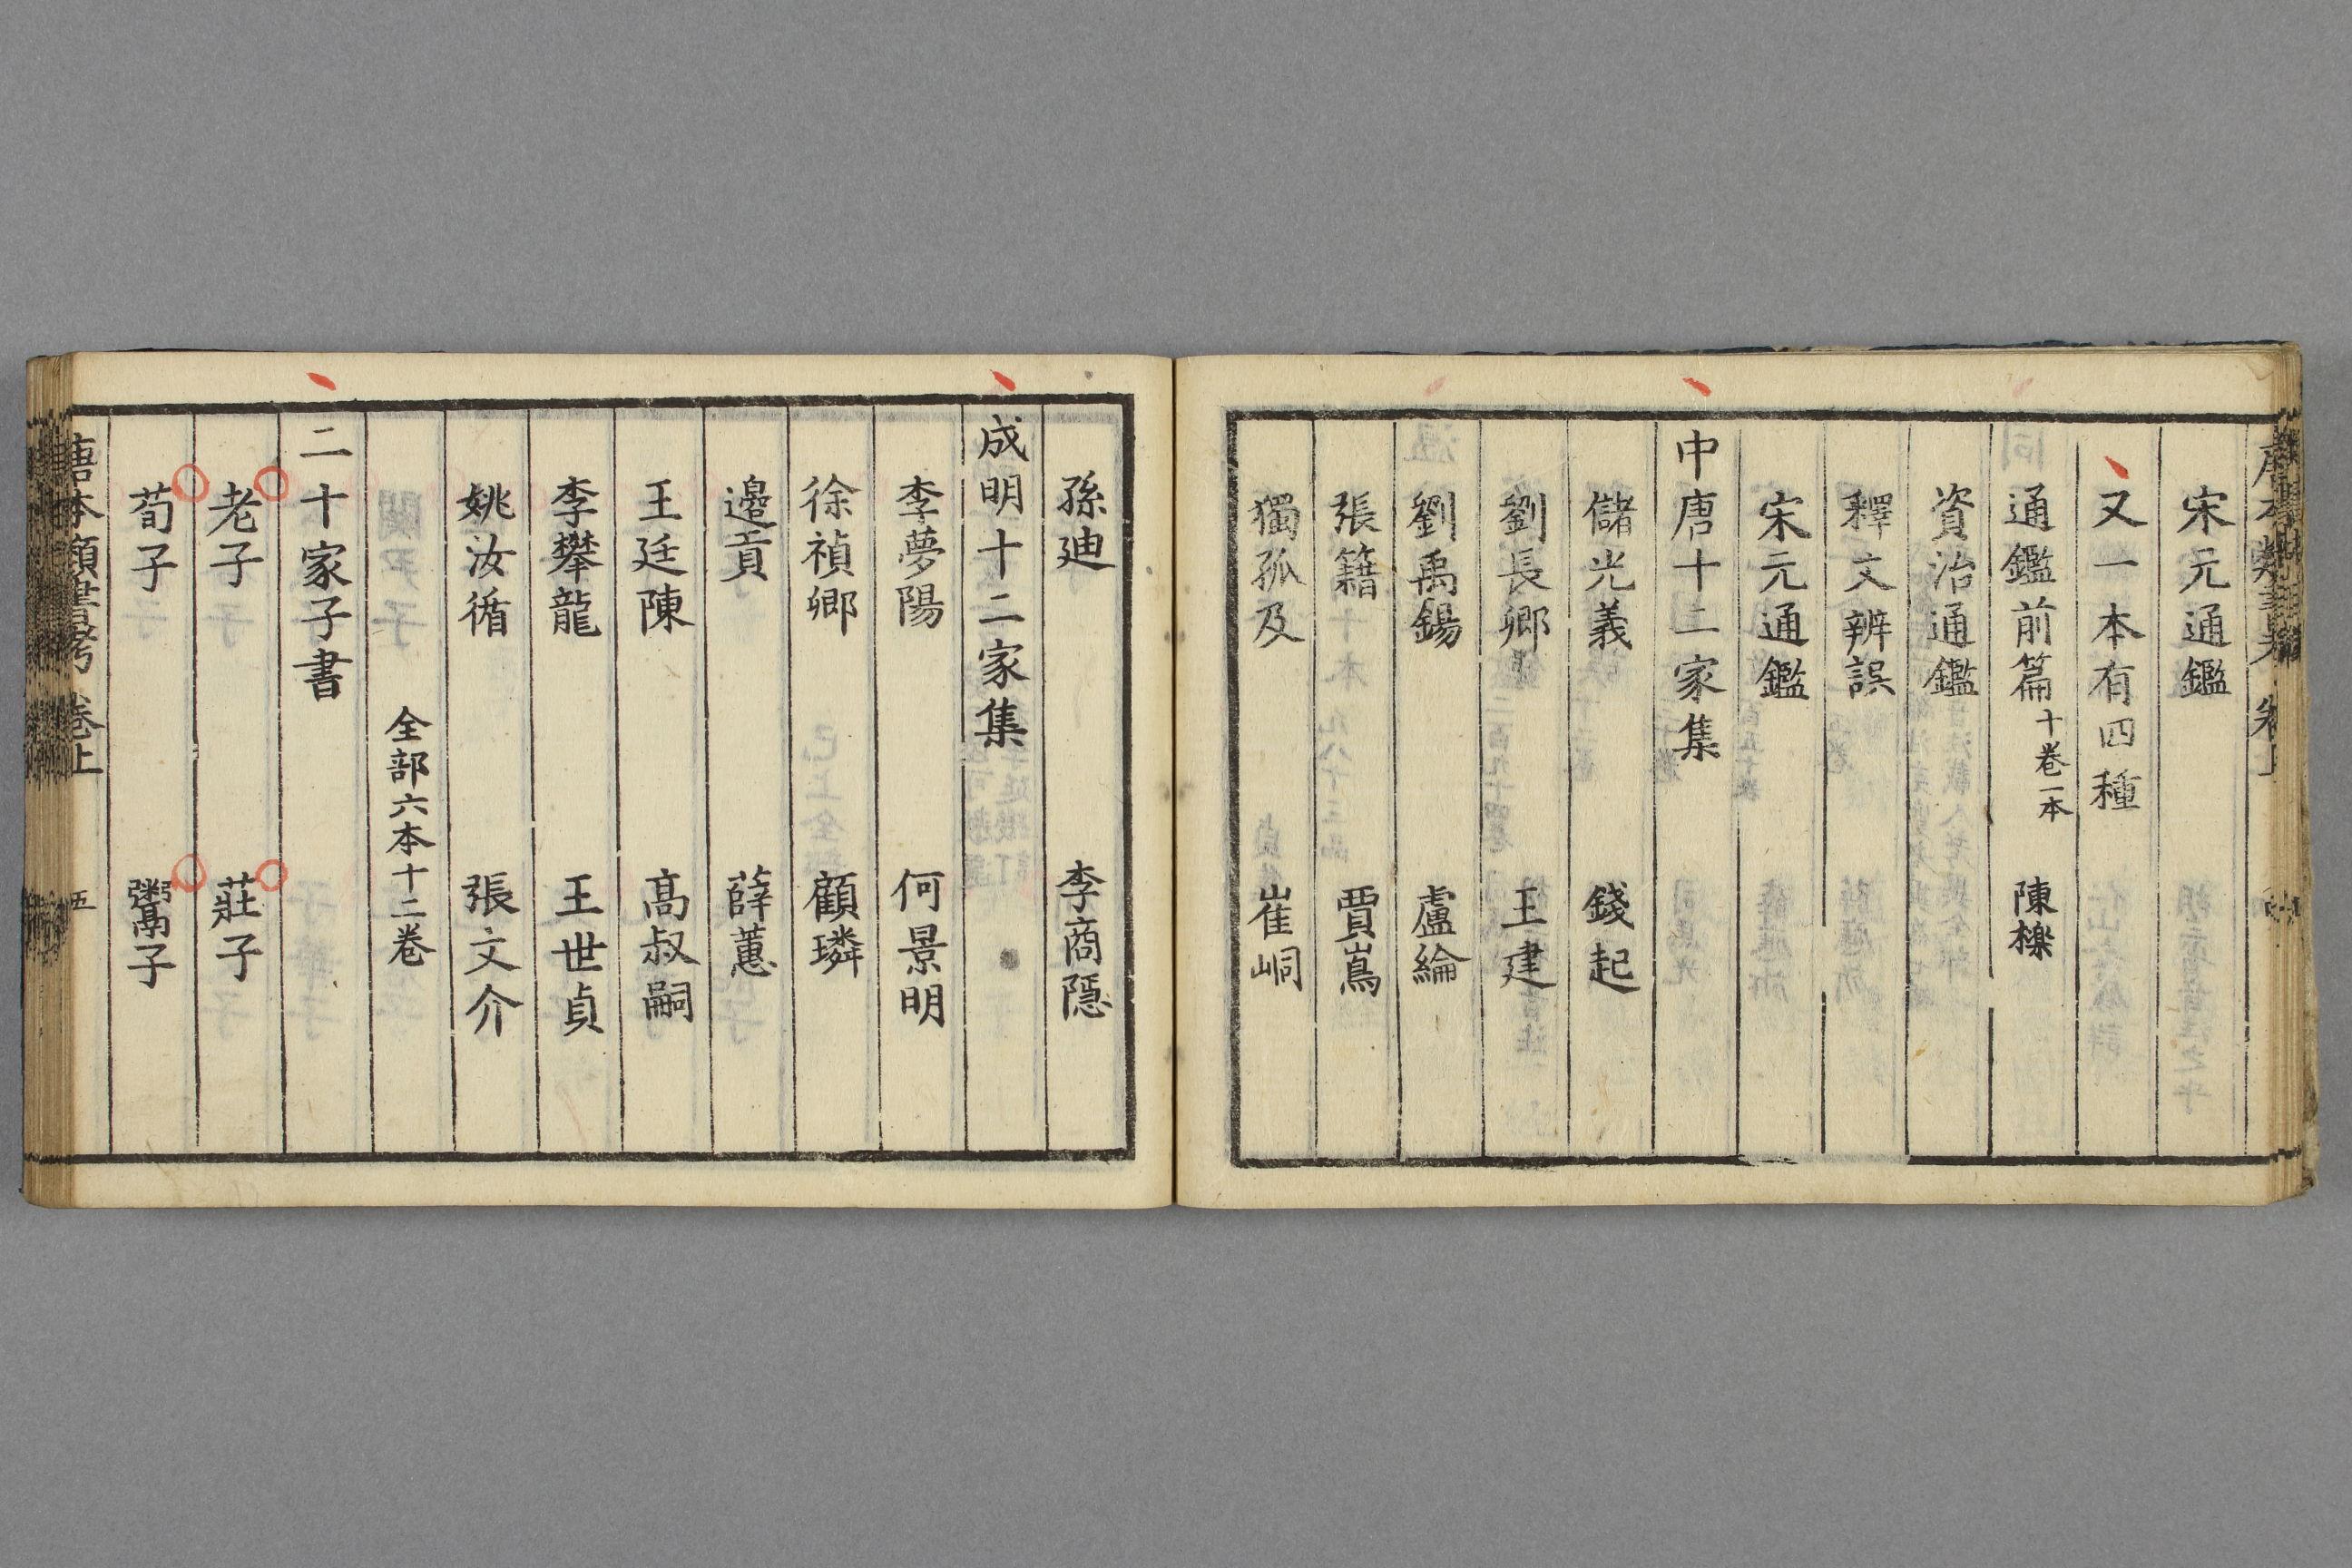 宋元通鑑
又一本有四種
通鑑前篇十卷一本 陳櫟
資治通鑑
釋文辨誤
宋元通鑑
中唐十二家集
儲光義 錢起
劉長卿 王建
劉禹錫 盧綸
張籍 賈嶌
獨孤及 崔峒
孫迪 李商隱
成明十二家集
李夢陽 何景明
徐禎卿 顧璘
邉貢 薛蕙
王廷陳 高叔嗣
李攀龍 王世貞
姚汝循 張文介
全部六本十二卷
二十家子書
老子 莊子
荀子 鬻子
唐本類書考 卷上 五